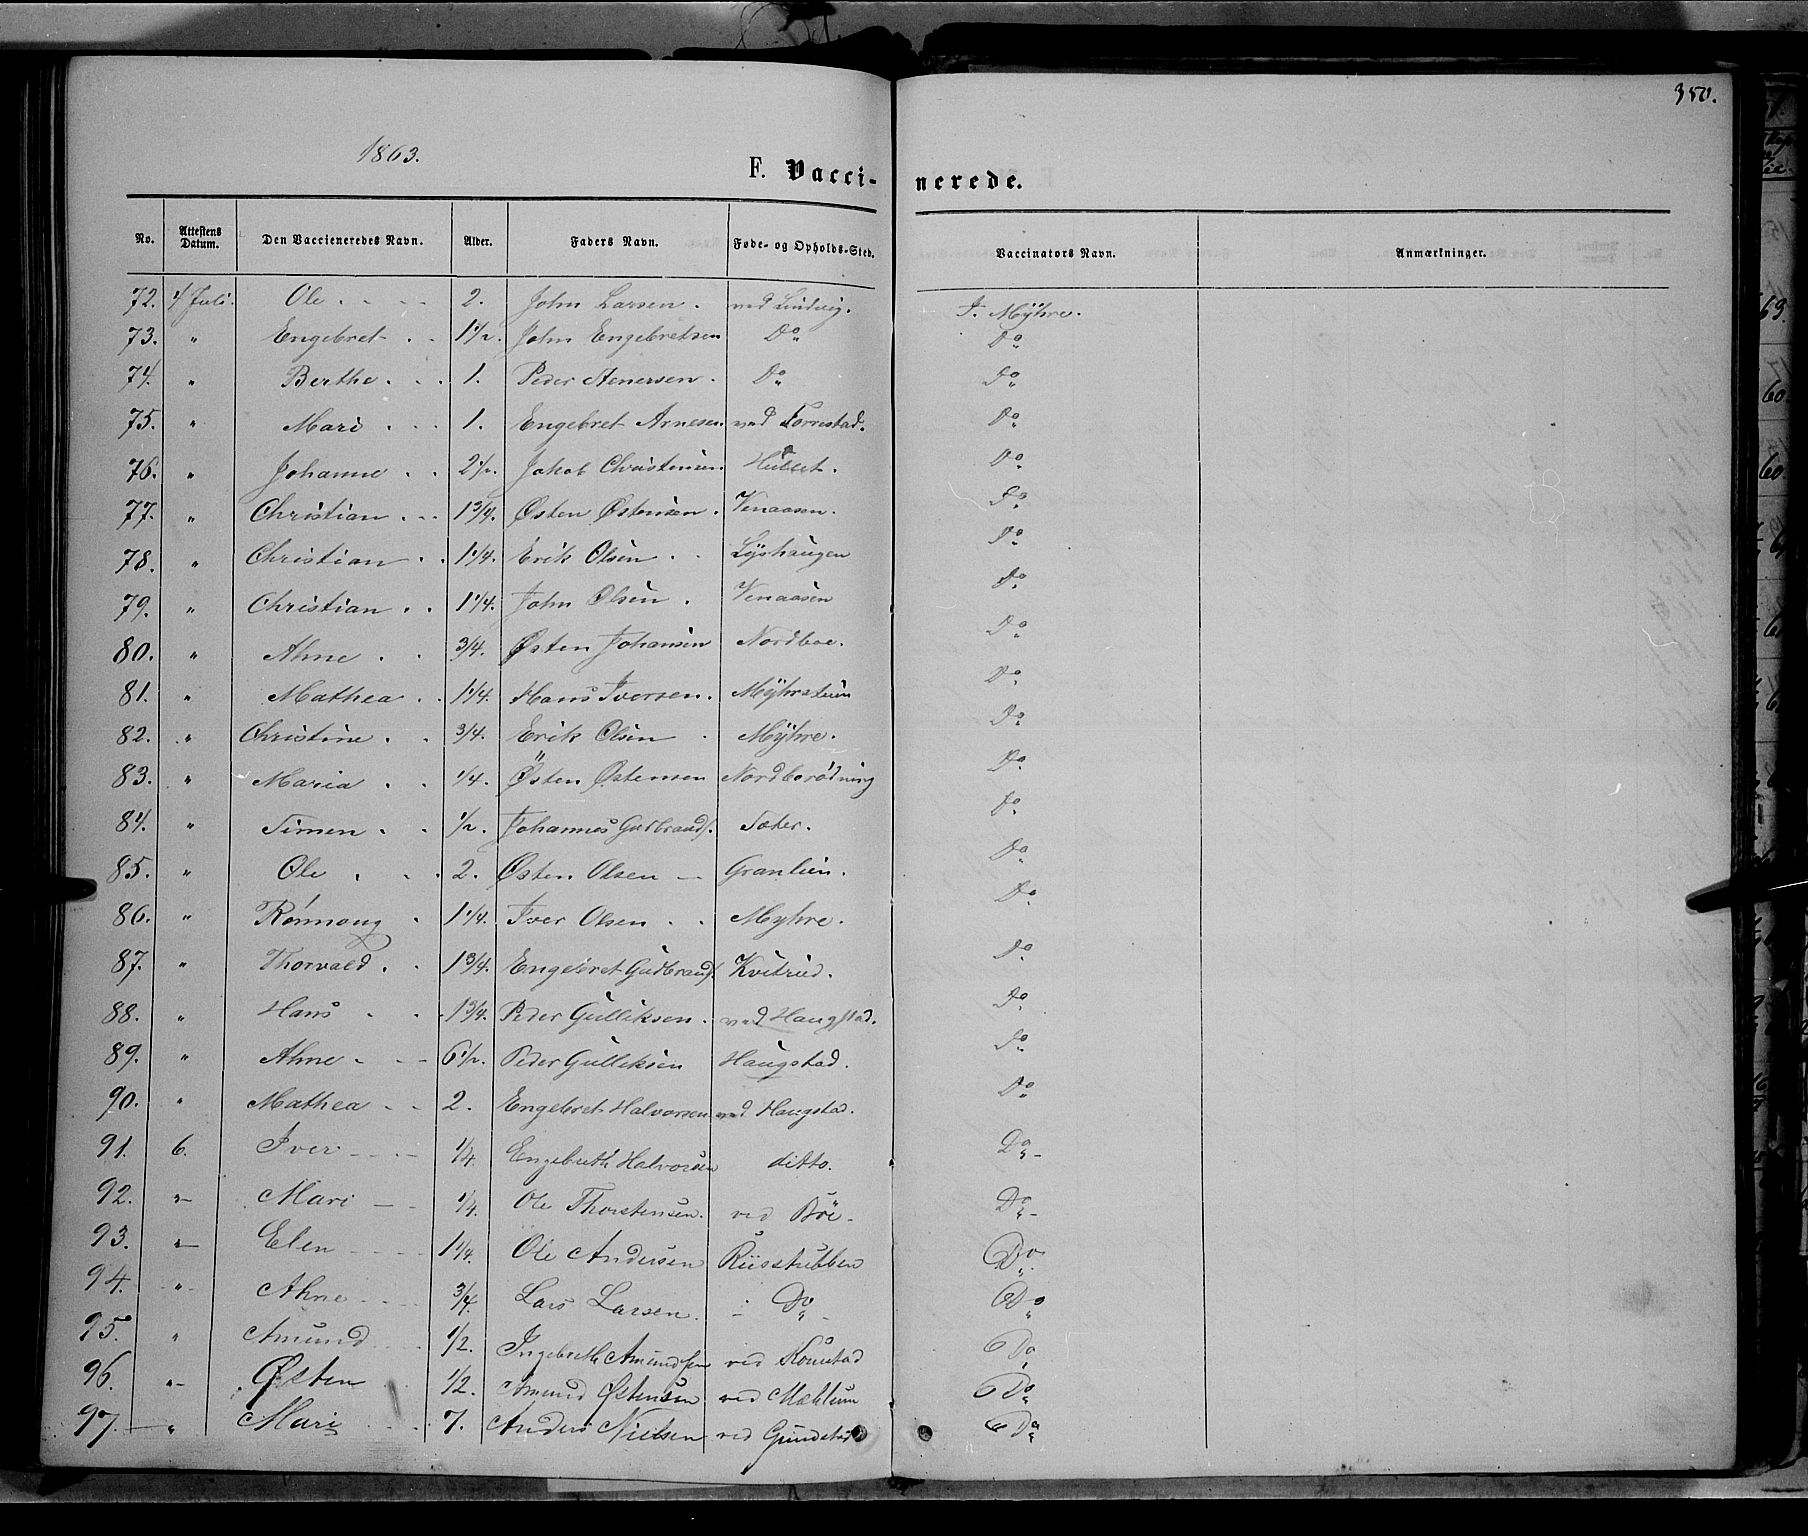 350.
1863.
F. Vacci- nerede.
No. Attestens Datum. Den Vaccieneredes Navn. Alder. Faders Navn. Føde- og Opholds-Sted. Vaccinators Navn. Anmærkninger.
72. 4 Juli. Ole 2. John Larsen. ved Lindvig. J. Mÿhre.
73. " Engebret 1 1/2. John Engebretsen Do Do
74. " Berthe 1. Peder Stenersen. Do Do
75. " Mari 1. Engebret Arnesen ved Forrestad. Do
76. " Johanne 2 1/2. Jakob Christensen Do
77. " Christian 1 3/4. Østen Østensen. Venaasen. Do
78. " Christian 1 1/4. Erik Olsen Lÿshaugen Do
79. " Christian 1 1/4. John Olsen. Venaasen Do
80. " Ahne 3/4. Østen Johansen Nordboe. Do
81. " Mathea 1 1/4. Hans Iversen. Mÿhrstuen Do
82. " Christine 3/4. Erik Olsen Mÿhre. Do
83. " Maria 1/4. Østen Østensen Nordberødning Do
84. " Simen 1/2. Johannes Gudbrands. Sæter. Do
85. " Ole 2. Østen Olsen Granlien. Do
86. " Rønnaug 1 1/4. Iver Olsen Myhre. Do
87. " Thorvald 1 3/4. Engebret Gudbrands. Kvitrud. Do
88. " Hans 1 3/4. Peder Gulliksen. ved Haugstad. Do
89. " Ahne 6 1/2. Peder Gulliksen Haugstad. Do
90. " Mathea 2. Engebret Halvorsen ved Haugstad. Do
91. 6. Iver 1/4. Engebreth Halvorsen ditto. Do
92. " Mari 1/4. Ole Thorstensen. ved Bøe Do
93. " Elen 1 1/4. Ole Andersen Riisstubben Do
94. " Ahne 3/4. Lars Larsen. Do Do
95. " Amund 1/2. Ingebreth Amundsen ved Do
96. " Østen 1/2. Amund Østensen ved Mæhlum Do
97. " Mari 7. Anders Nielsen ved Gundstad Do